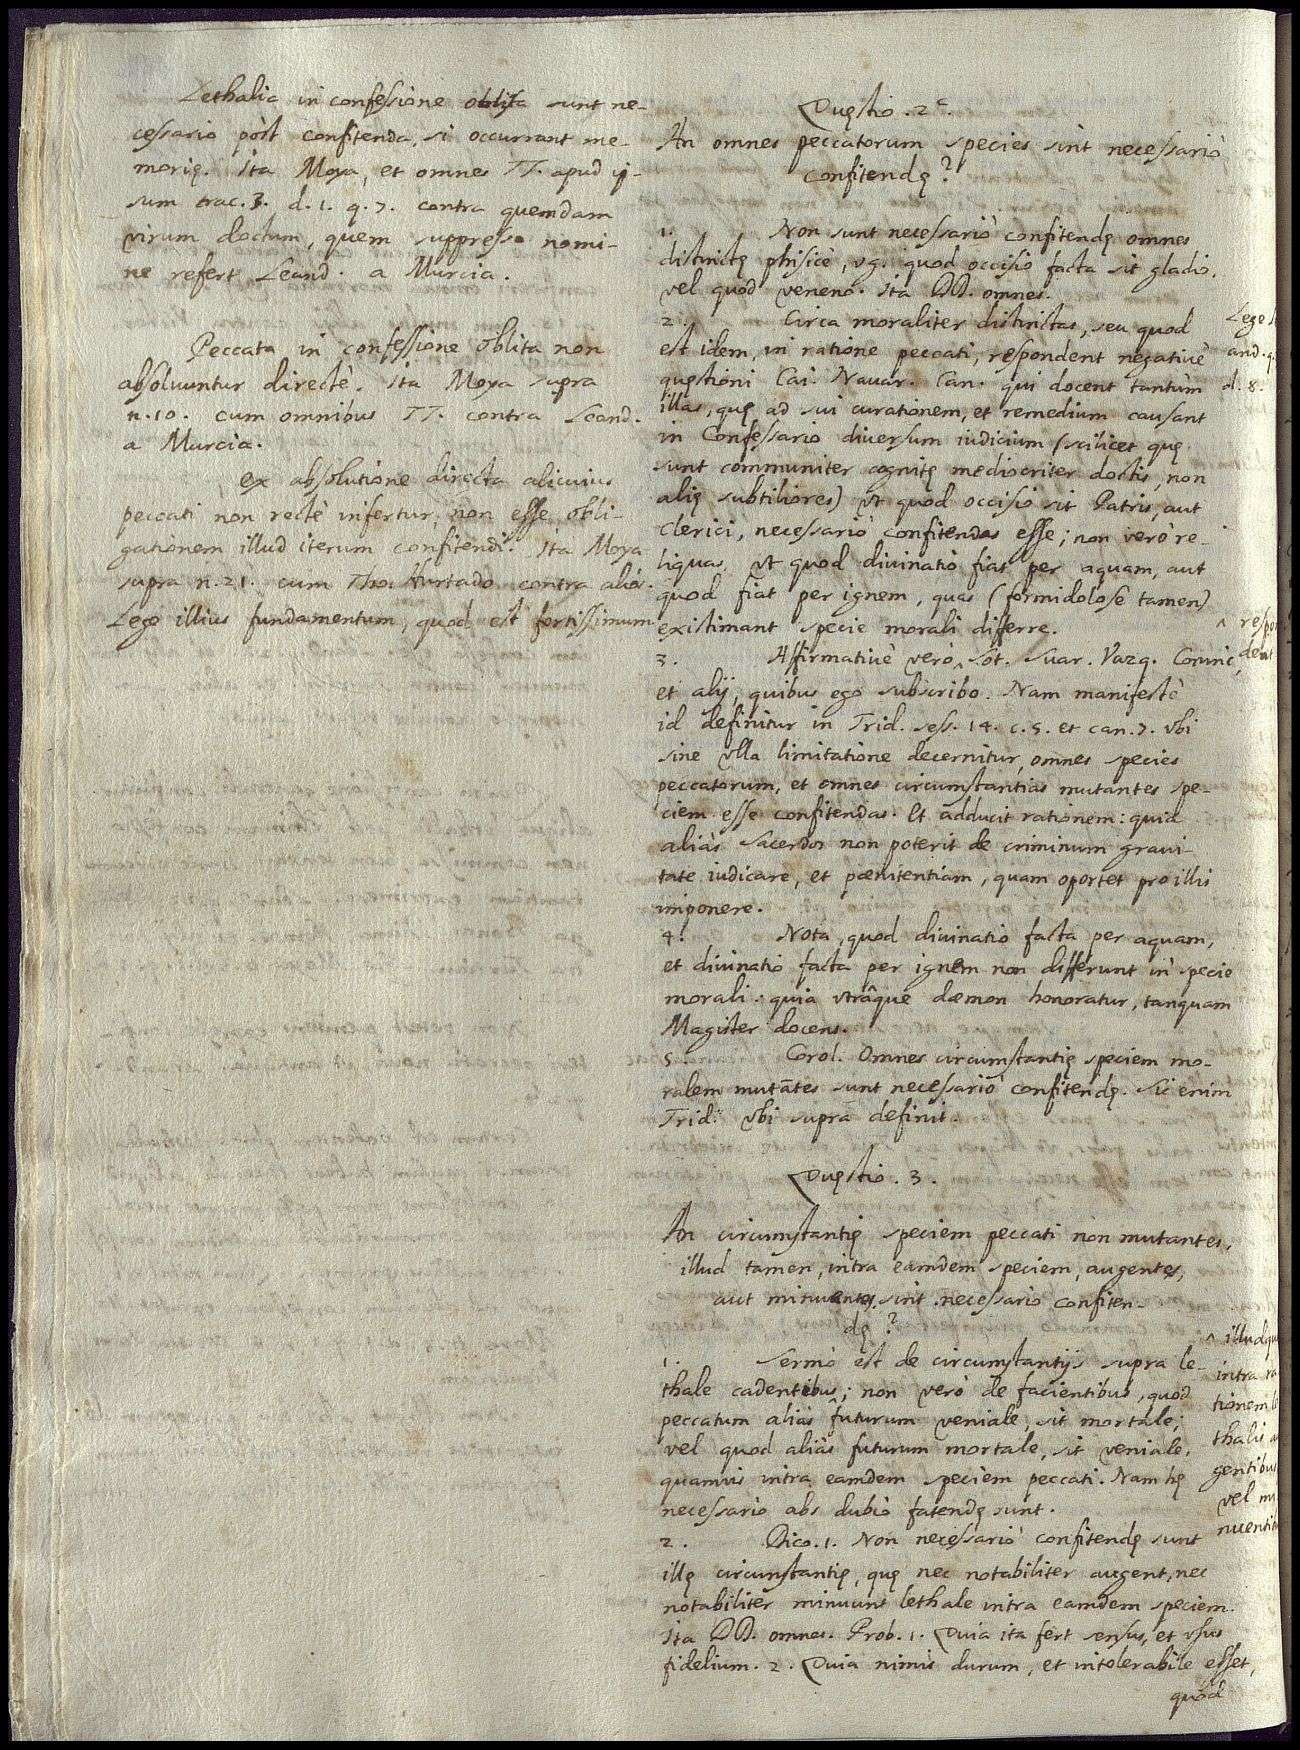 Lethalia in confessione oblita sunt ne-
cessario post confitenda, si occurrant me-
morię. Ita Moya, et omnes TT. apud ip-
sum trac. 3. d. 1. q. 7. contra quemdam
virum doctum, quem suppresso nomi-
ne refert Leand. a Murcia.
Peccata in confessione oblita non
absoluuntur directè. Ita Moya supra
n. 10. cum omnibus TT. contra Leand.
a Murcia.
Ex absolutione directa alicuius
peccati non rectè infertur, non esse obli-
gationem illud iterum confitendi. Ita Moya
supra n. 21. cum Tho. Hurtado contra alios.
Lege illius fundamentum, quod est fortissimum.
Quęstio. 2ª.
An omnes peccatorum species sint necessariò
confitendę?
1. Non sunt necessariò confitendę omnes
distinctę phisicè, vg. quod occisio facta sit gladio,
vel quod veneno. Ita DD. omnes.
2. Circa moraliter distinctas, seu quod
est idem, in ratione peccati, respondent negatiuè
quęstioni Cai. Nauar. Can. qui docent tantùm
illas, quę ad sui curationem, et remedium causant
in Confessario diuersum iudicium (scilicet quę
sunt communiter cognitę mediocriter doctis, non
alię subtiliores) vt quod occisio sit Patris, aut
Clerici, necessariò confitendas esse; non verò re-
liquas, vt quod diuinatio fiat per aquam, aut
quod fiat per ignem, quas (formidolosè tamen)
existimant specie morali differre.
3. Affirmatiuè verò ^ Sot. Suar. Vazq. Coninc,
et alij, quibus ego subscribo. Nam manifestè
id definitur in Trid. sess. 14. c. 5. et can. 7. vbi
sine vlla limitatione decernitur, omnes species
peccatorum, et omnes circumstantias mutantes spe-
ciem esse confitendas. Et adducit rationem: quia
aliàs sacerdos non poterit de criminum graui-
tate iudicare, et pœnitentiam, quam oportet pro illis
imponere.
4. Nota, quod diuinatio facta per aquam,
et diuinatio facta per ignem non differunt in specie
morali: quia vtrâque dæmon honoratur, tanquam
Magister docens.
5. Corol. Omnes circumstantię speciem mo-
ralem mutātes sunt necessariò confitendę. Sic enim
Trid. vbi supra definit.
Quęstio. 3.
An circumstantię speciem peccati non mutantes,
illud tamen, intra eamdem speciem, augentes,
aut minuentes, sint necessario confiten-
dę?
1. Sermo est de circumstantijs supra le-
thale cadentibus; non verò de facientibus, quod
peccatum aliàs ^ futurum veniale, sit mortale;
vel quod aliàs futurum mortale, sit veniale,
quamuis intra eamdem speciem peccati. Nam hę
necessariò abs dubio fatendę sunt.
2. Dico. 1. Non necessariò confitendę sunt
illę circumstantię, quę nec notabiliter augent, nec
notabiliter minuunt lethale intra eamdem speciem.
Ita DD. omnes. Prob. 1. Quia ita fert sensus, et vsus
fidelium. 2. Quia nimis durum, et intolerabile esset,
quod
Lege
and. q.
d. 8.
^ respon
dent
^ illudq
intra ra
tionem le
thalis
gentibus
vel mi
nuenti